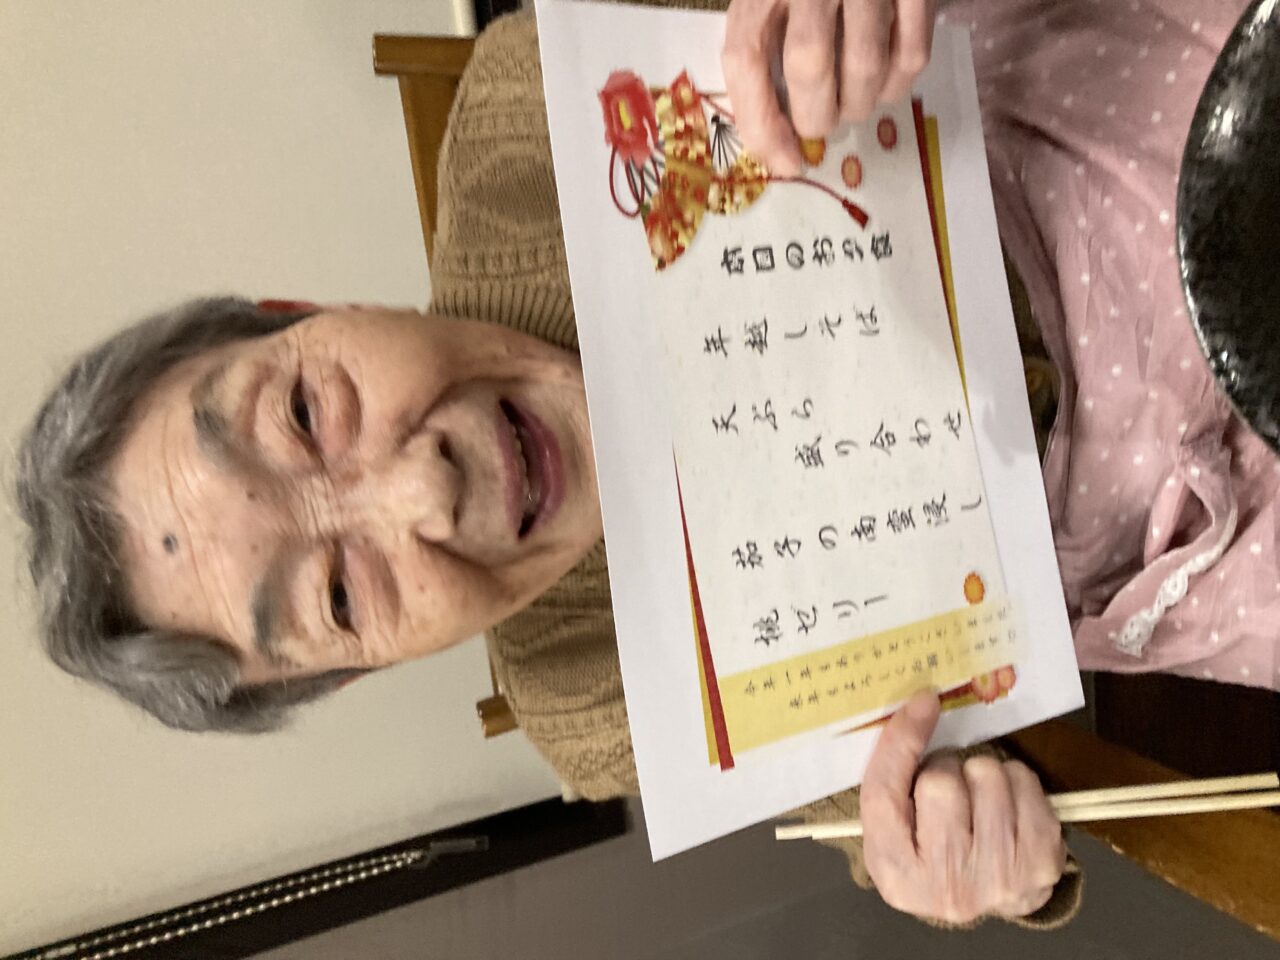 本日のお夕食
年越しそば
天ぷら
盛り合わせ
茄子の南蛮浸し
桃ゼリー
今年一年もありがとうございました
来年もよろしくお願いします